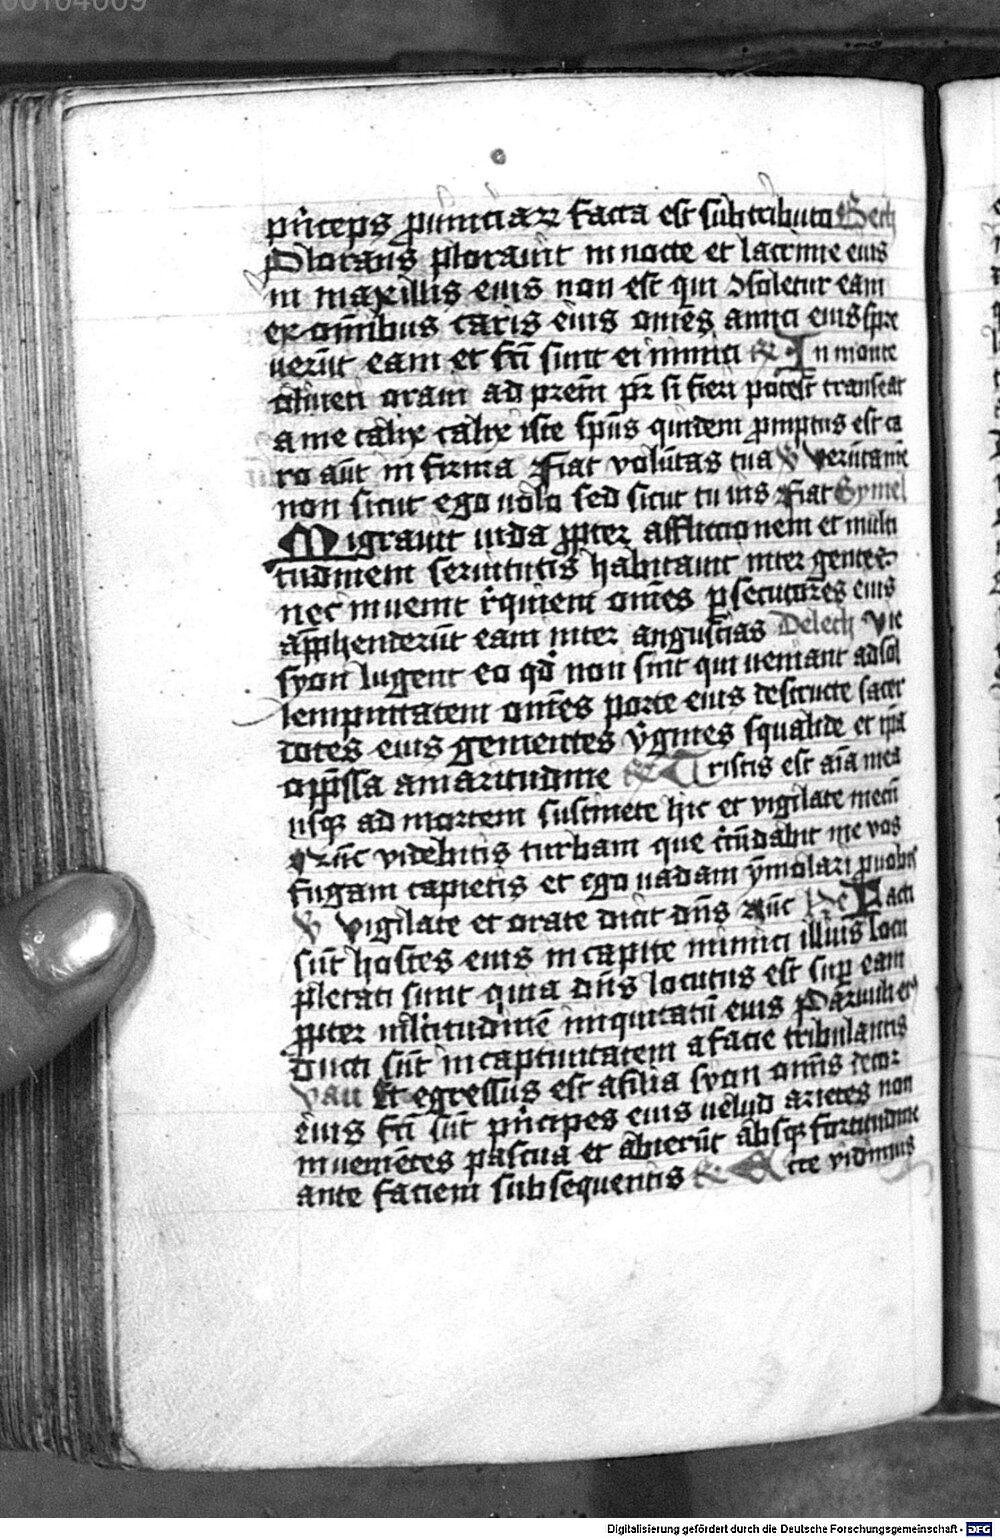 00104009
p̄nceps ꝓuinciaꝝ facta est sub tributo Beth
Plorans plorauit in nocte et lacrime eius
in maxillis eius non est qui ꝯsoletur eam
ex om̄ibus caris eius om̄es amici eius spre
uerūt eam et fc̄i sunt ei inimici In monte
oliueti oraui ad prēm pr̄ si fieri potest transeat
a me calix calix iste sp̄us quidem promptus est ca
ro aūt infirma Fiat volūtas tua V Verūtamē
non sicut ego uolo sed sicut tu uis Fiat Gymel
Migrauit iuda ꝓpter afflictionem et multi
tudinem seruitutis habitauit inter gentes
nec inuenit r̄quiem om̄es ꝑsecutores eius
app̄henderūt eam inter angustias Deleth Vie
syon lugent eo qd̄ non sint qui ueniant ad sol
lempnitatem om̄es porte eius destructe sacer
dotes eius gementes v̄gines squalide et ip̄a
opp̄ssa amaritudine Tristis est aīa mea
usqꝫ ad mortem sustinete hic et vigilate mecū
Nūc videbitis turbam que c̄cūdabit me vos
fugam capietis et ego uadam ymolari ꝓ uobis
V Vigilate et orate dicit dn̄s Nūc He Facti
sūt hostes eius in capite inimici illius locu
pletati sunt quia dn̄s locutus est suꝑ eam
ꝓpter mltitudinē iniquitatū eius Paruuli eiꝰ
ducti sūt in captiuitatem a facie tribulantis
Vau Et egressus est a filia syon om̄is decor
eius fc̄i sūt p̄ncipes eius uelud arietes non
inuenietes pascua et abierūt absqꝫ fortitudine
ante faciem subsequentis Ecce vidimus
Digitalisierung gefördert durch die Deutsche Forschungsgemeinschaft - DFG